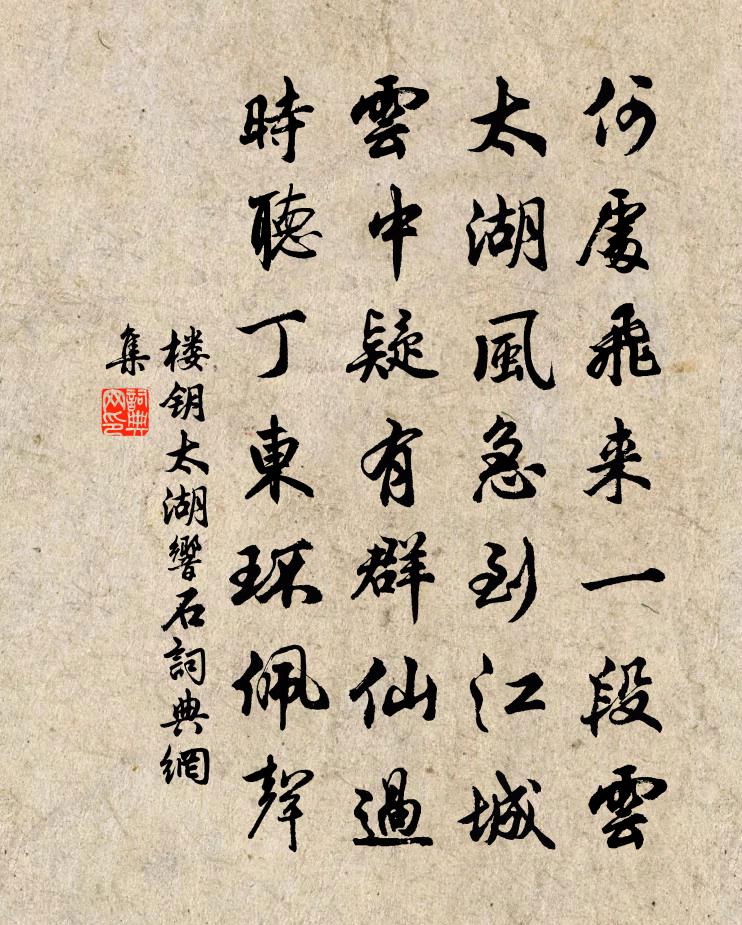 何處飛来一段雲
太湖風急到江城
雲中疑有群仙過
時聽丁東环佩聲
楼钥太湖響石詞典網
集
詞典網印